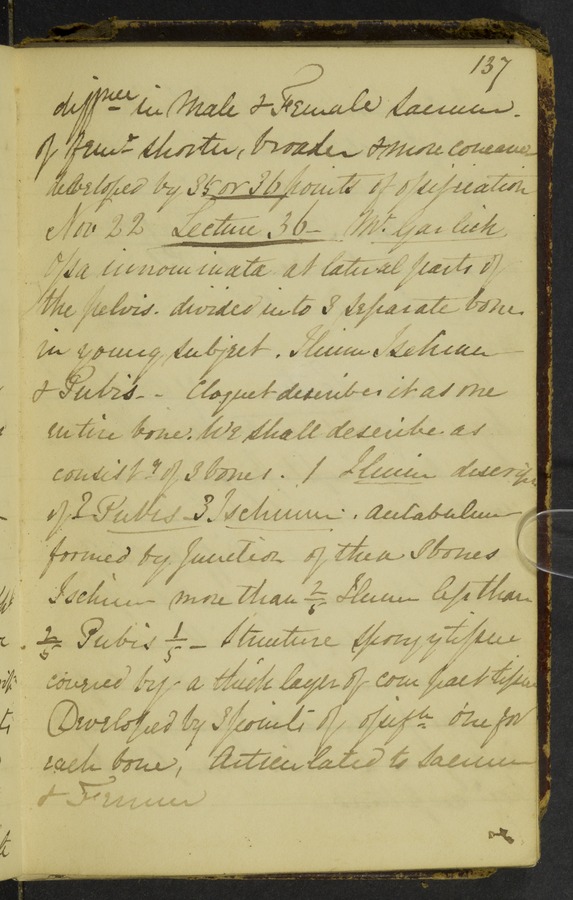 137
diffnce in Male & Female Sacrum.
of femle shorter, broader & more concave
developed by 35 or 36 points of ossification
Nov 22 Lecture 36 - Mr. Garlick
Ossa innominata at lateral parts of
the pelvis. divided into 3 separate bones
in young subject. Ilium Ischium
& Pubis - - Cloquet describes it as one
entire bone. We shall describe as
consistg of 3 bones. 1 Ilium descrip
of 2 Pubis 3. Ischium. acetabulum
formed by junction of these 3 bones
Ischium more than 2/5 Ilium less than
2/5 Pubis 1/5 - Structure spongy tissue
covered by a thick layer of compact tissue
Developed by 3 points of ossifn one for
each bone, Articulated to Sacrum
& Femur